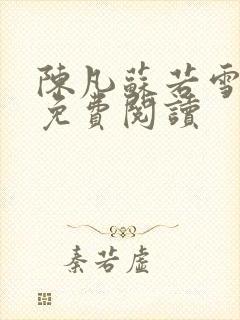 陳凡蘇若雪
免費閱讀
秦若虛